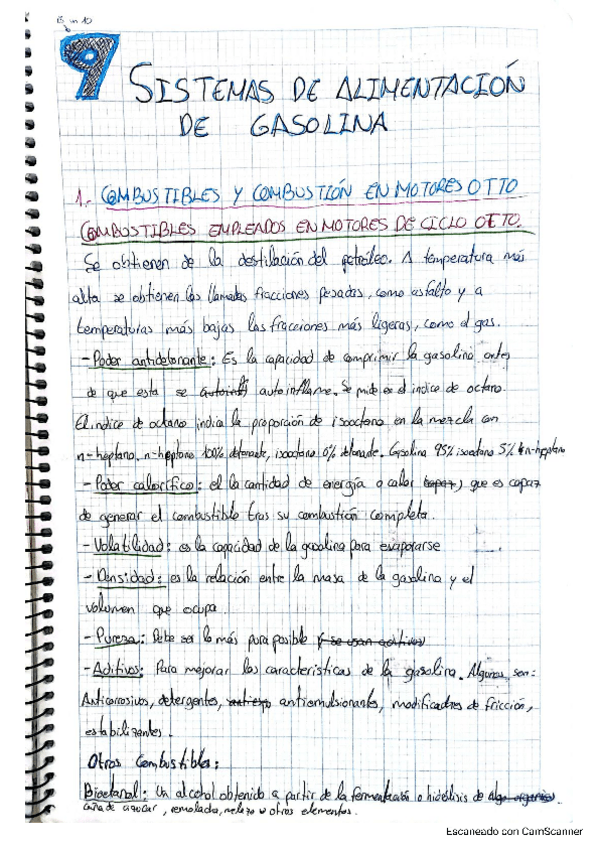 9 SISTEMAS DE ALIMENTACIÓN
DE GASOLINA
1.- COMBUSTIBLES Y COMBUSTIÓN EN MOTORES OTTO
COMBUSTIBLES EMPLEADOS EN MOTORES DE CICLO OTTO.
Se obtienen de la destilación del petróleo. A temperatura más
alta se obtienen las llamadas fracciones pesadas, como asfalto y a
temperaturas más bajas las fracciones más ligeras, como el gas.
- Poder antidetonante: Es la capacidad de comprimir la gasolina antes
de que esta se autoinfl autoinflame. Se mide es el indice de octano.
El indice de octano indica la proporción de isooctano en la mezcla con
n-heptano. n-heptano 100% detonante, isooctano 0% detonante. Gasolina 95% isooctano 5% n-heptano
- Poder calorífico: el la cantidad de energía o calor que es capaz
de generar el combustible tras su combustión completa.
- Volatilidad: es la capacidad de la gasolina para evaporarse
- Densidad: es la relación entre la masa de la gasolina y el
volumen que ocupa.
- Pureza: Debe ser lo más pura posible (se usan aditivos
- Aditivos: Para mejorar las caracteristicas de la gasolina. Algunos son:
Anticorrosivos, detergentes, antiemulsionantes, modificadores de fricción,
estabilizantes.
Otros Combustibles:
Bioetanol: Un alcohol obtenido a partir de la fermentación o hidrólisis de
caña de azucar, remolacha, melaza u otros elementos.
Escaneado con CamScanner